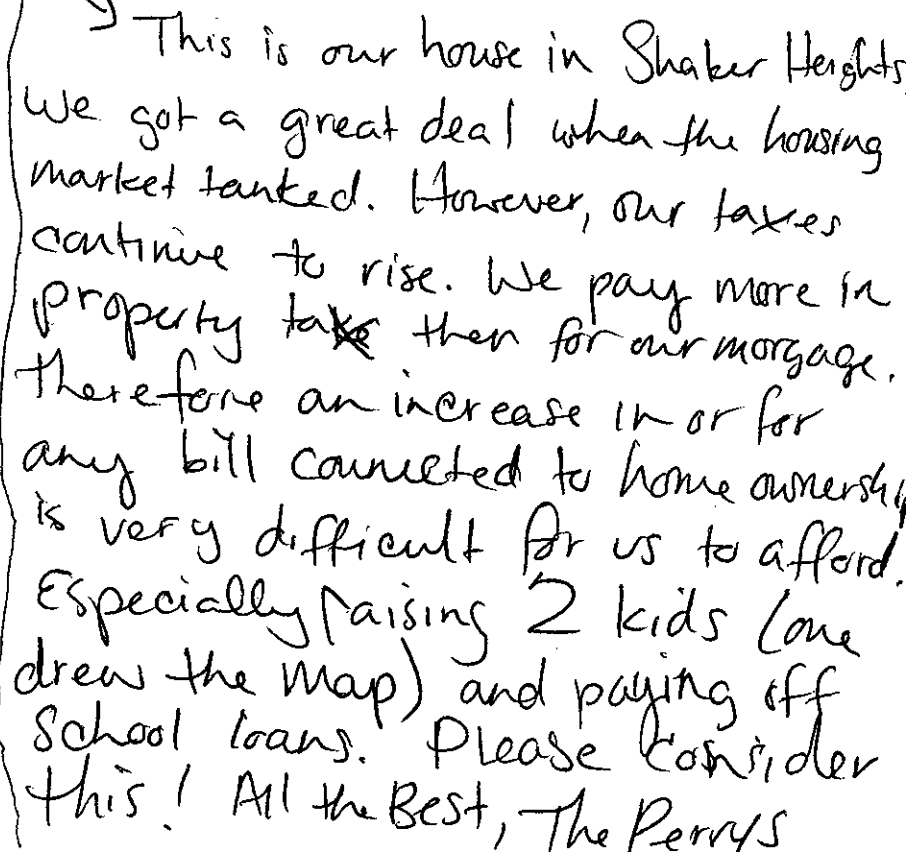 This is our house in Shaker Heights.
We got a great deal when the housing
market tanked. However, our taxes
continue to rise. We pay more in
property tax then for our morgage.
Therefore an increase in or for
any bill connected to home ownership
is very difficult for us to afford.
Especially raising 2 kids (one
drew the map) and paying off
school loans. Please consider
this! All the Best, The Perrys